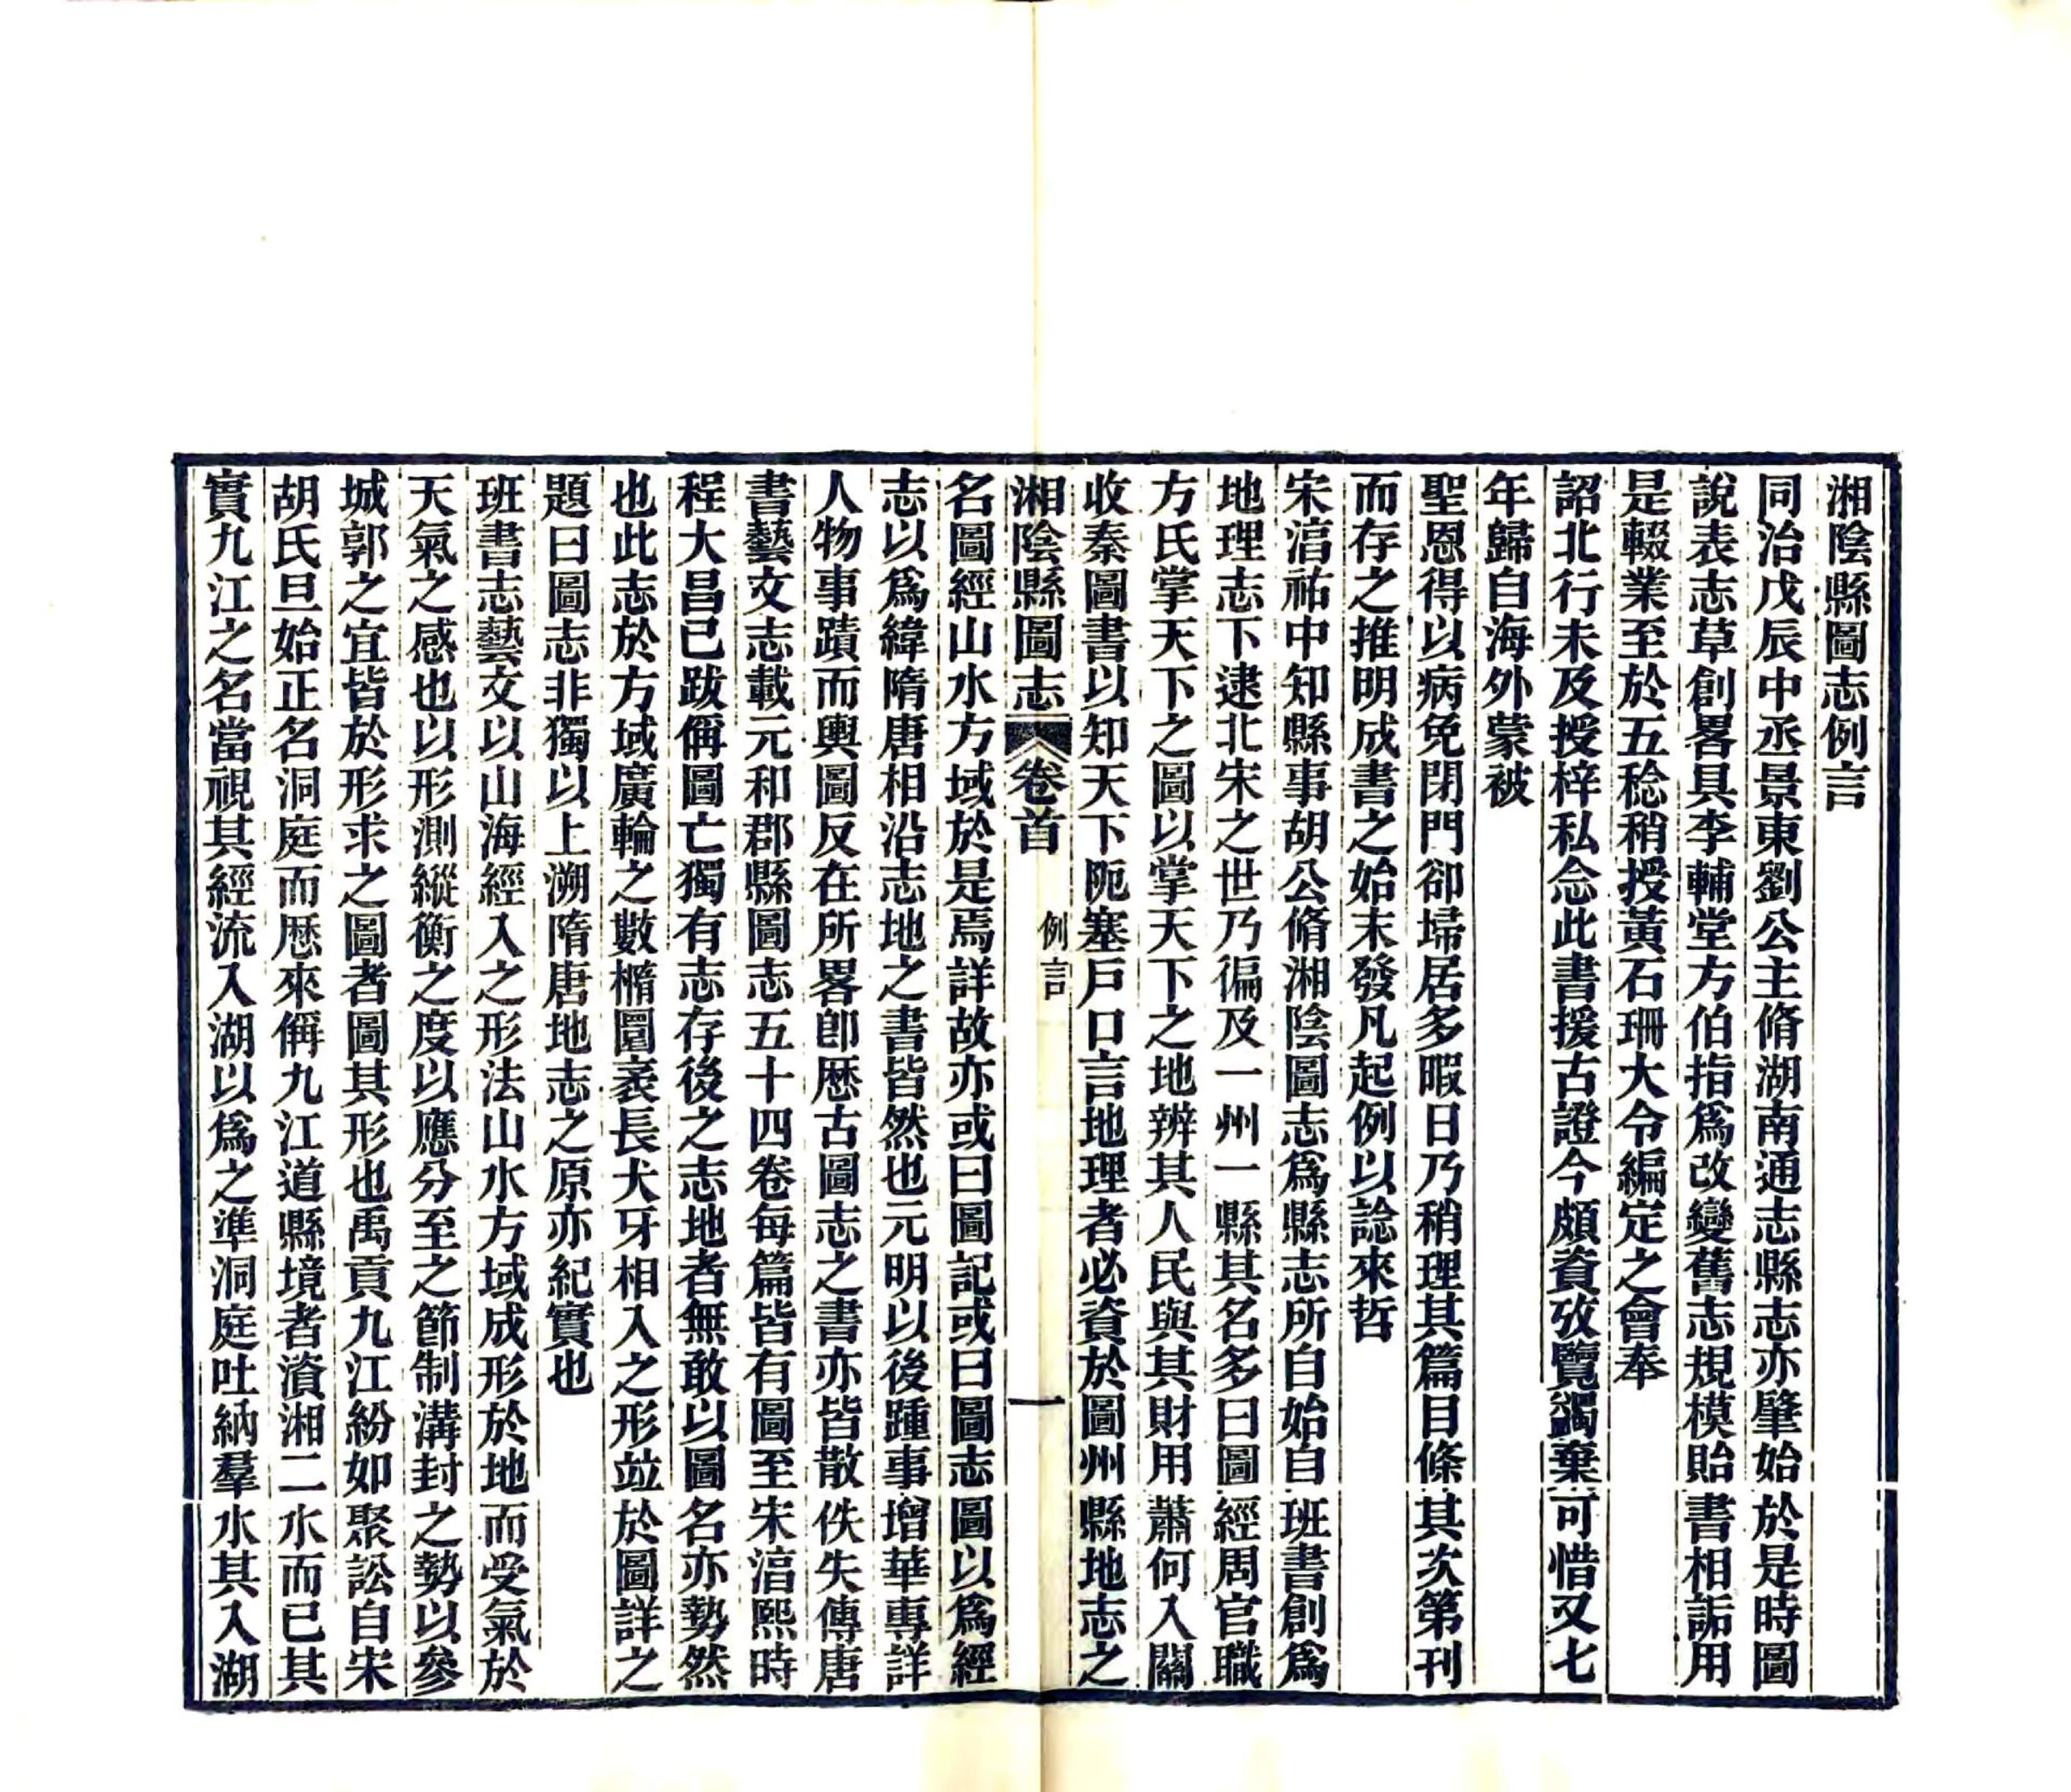 湘陰縣圖志例言
同治戊辰中丞景東劉公主脩湖南通志縣志亦肇始於是時圖
說表志草創畧具李輔堂方伯指爲改變舊志規模貽書相詬用
是輟業至於五稔稍授黃石珊大令編定之會奉
詔北行未及授梓私念此書援古證今頗資攷覽蠲棄可惜又七
年歸自海外蒙被
聖恩得以病免閉門卻埽居多暇日乃稍理其篇目條其次第刊
而存之推明成書之始末發凡起例以諗來哲
宋湻祐中知縣事胡公脩湘陰圖志爲縣志所自始自班書創爲
地理志下逮北宋之世乃徧及一州一縣其名多曰圖經周官職
方氏掌天下之圖以掌天下之地辨其人民與其財用蕭何入關
收秦圖書以知天下阨塞戶口言地理者必資於圖州縣地志之
湘陰縣圖志 卷首 例言 一
名圖經山水方域於是焉詳故亦或曰圖記或曰圖志圖以爲經
志以爲緯隋唐相沿志地之書皆然也元明以後踵事增華專詳
人物事蹟而輿圖反在所畧卽歷古圖志之書亦皆散佚失傳唐
書藝文志載元和郡縣圖志五十四卷每篇皆有圖至宋湻熙時
程大昌已跋偁圖亡獨有志存後之志地者無敢以圖名亦勢然
也此志於方域廣輪之數橢圜袤長犬牙相入之形竝於圖詳之
題曰圖志非獨以上溯隋唐地志之原亦紀實也
班書志藝文以山海經入之形法山水方域成形於地而受氣於
天氣之感也以形測縱衡之度以應分至之節制溝封之勢以參
城郭之宜皆於形求之圖者圖其形也禹貢九江紛如聚訟自宋
胡氏旦始正名洞庭而歷來偁九江道縣境者濱湘二水而已其
實九江之名當視其經流入湖以爲之準洞庭吐納羣水其入湖